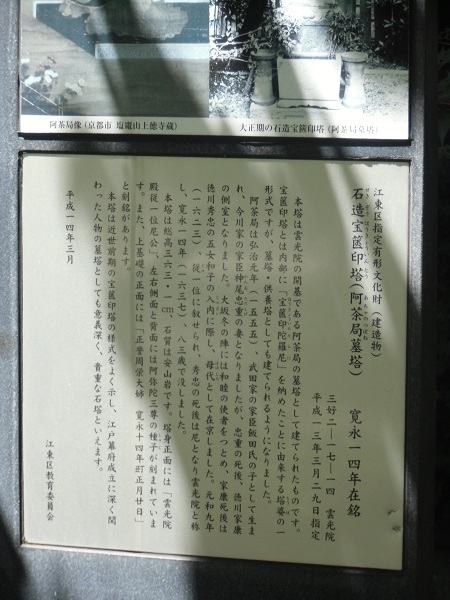 阿茶局像（京都市　塩竈山上徳寺蔵）
大正期の石造宝篋印塔（阿茶局墓塔）
江東区指定有形文化財（建造物）
石造宝篋印塔（阿茶局墓塔）
寛永一四年在銘
三好二―一七―一四　雲光院
平成一三年三月二九日指定
本塔は雲光院の開基である阿茶局の墓塔として建てられたものです。
宝篋印塔とは内部に「宝篋印陀羅尼」を納めたことに由来する塔婆の一
形式ですが、墓塔・供養塔としても建てられるようになりました。
阿茶局は弘治元年（一五五五）、武田家の家臣飯田氏の子として生ま
れ、今川家の家臣神尾忠重の妻となりましたが、忠重の死後、徳川家康
の側室となりました。大坂冬の陣には和睦の使者をつとめ、家康死後は
徳川秀忠の五女和子の入内に際し、母代として在京しました。元和九年
（一六二三）、従一位に叙せられ、秀忠の死後は尼となり雲光院と称
し、寛永一四年（一六三七）、八三歳で没しました。
本塔は総高三六三・　cm、石質は安山岩です。塔身正面には「雲光院
殿従一位尼公」、左右側面と背面には阿弥陀三尊の種子が刻まれていま
す。また、上基礎の正面には「正誉周栄大姉　寛永十四年町正月廿日」
と刻銘があります。
本塔は近世前期の宝篋印塔の様式をよく示し、江戸幕府成立に深く関
わった人物の墓塔としても意義深く、貴重な石塔といえます。
平成一四年三月
江東区教育委員会